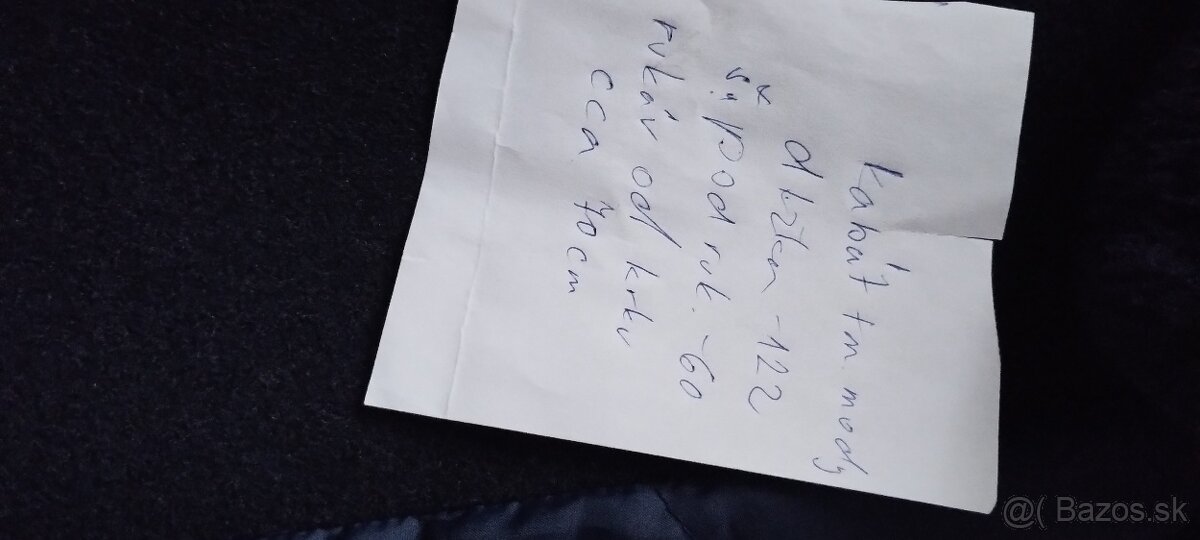 kabát tm. modr
dĺžka - 122
š. pod ruk. - 60
rukáv od krku
cca 70 cm
@( Bazos.sk